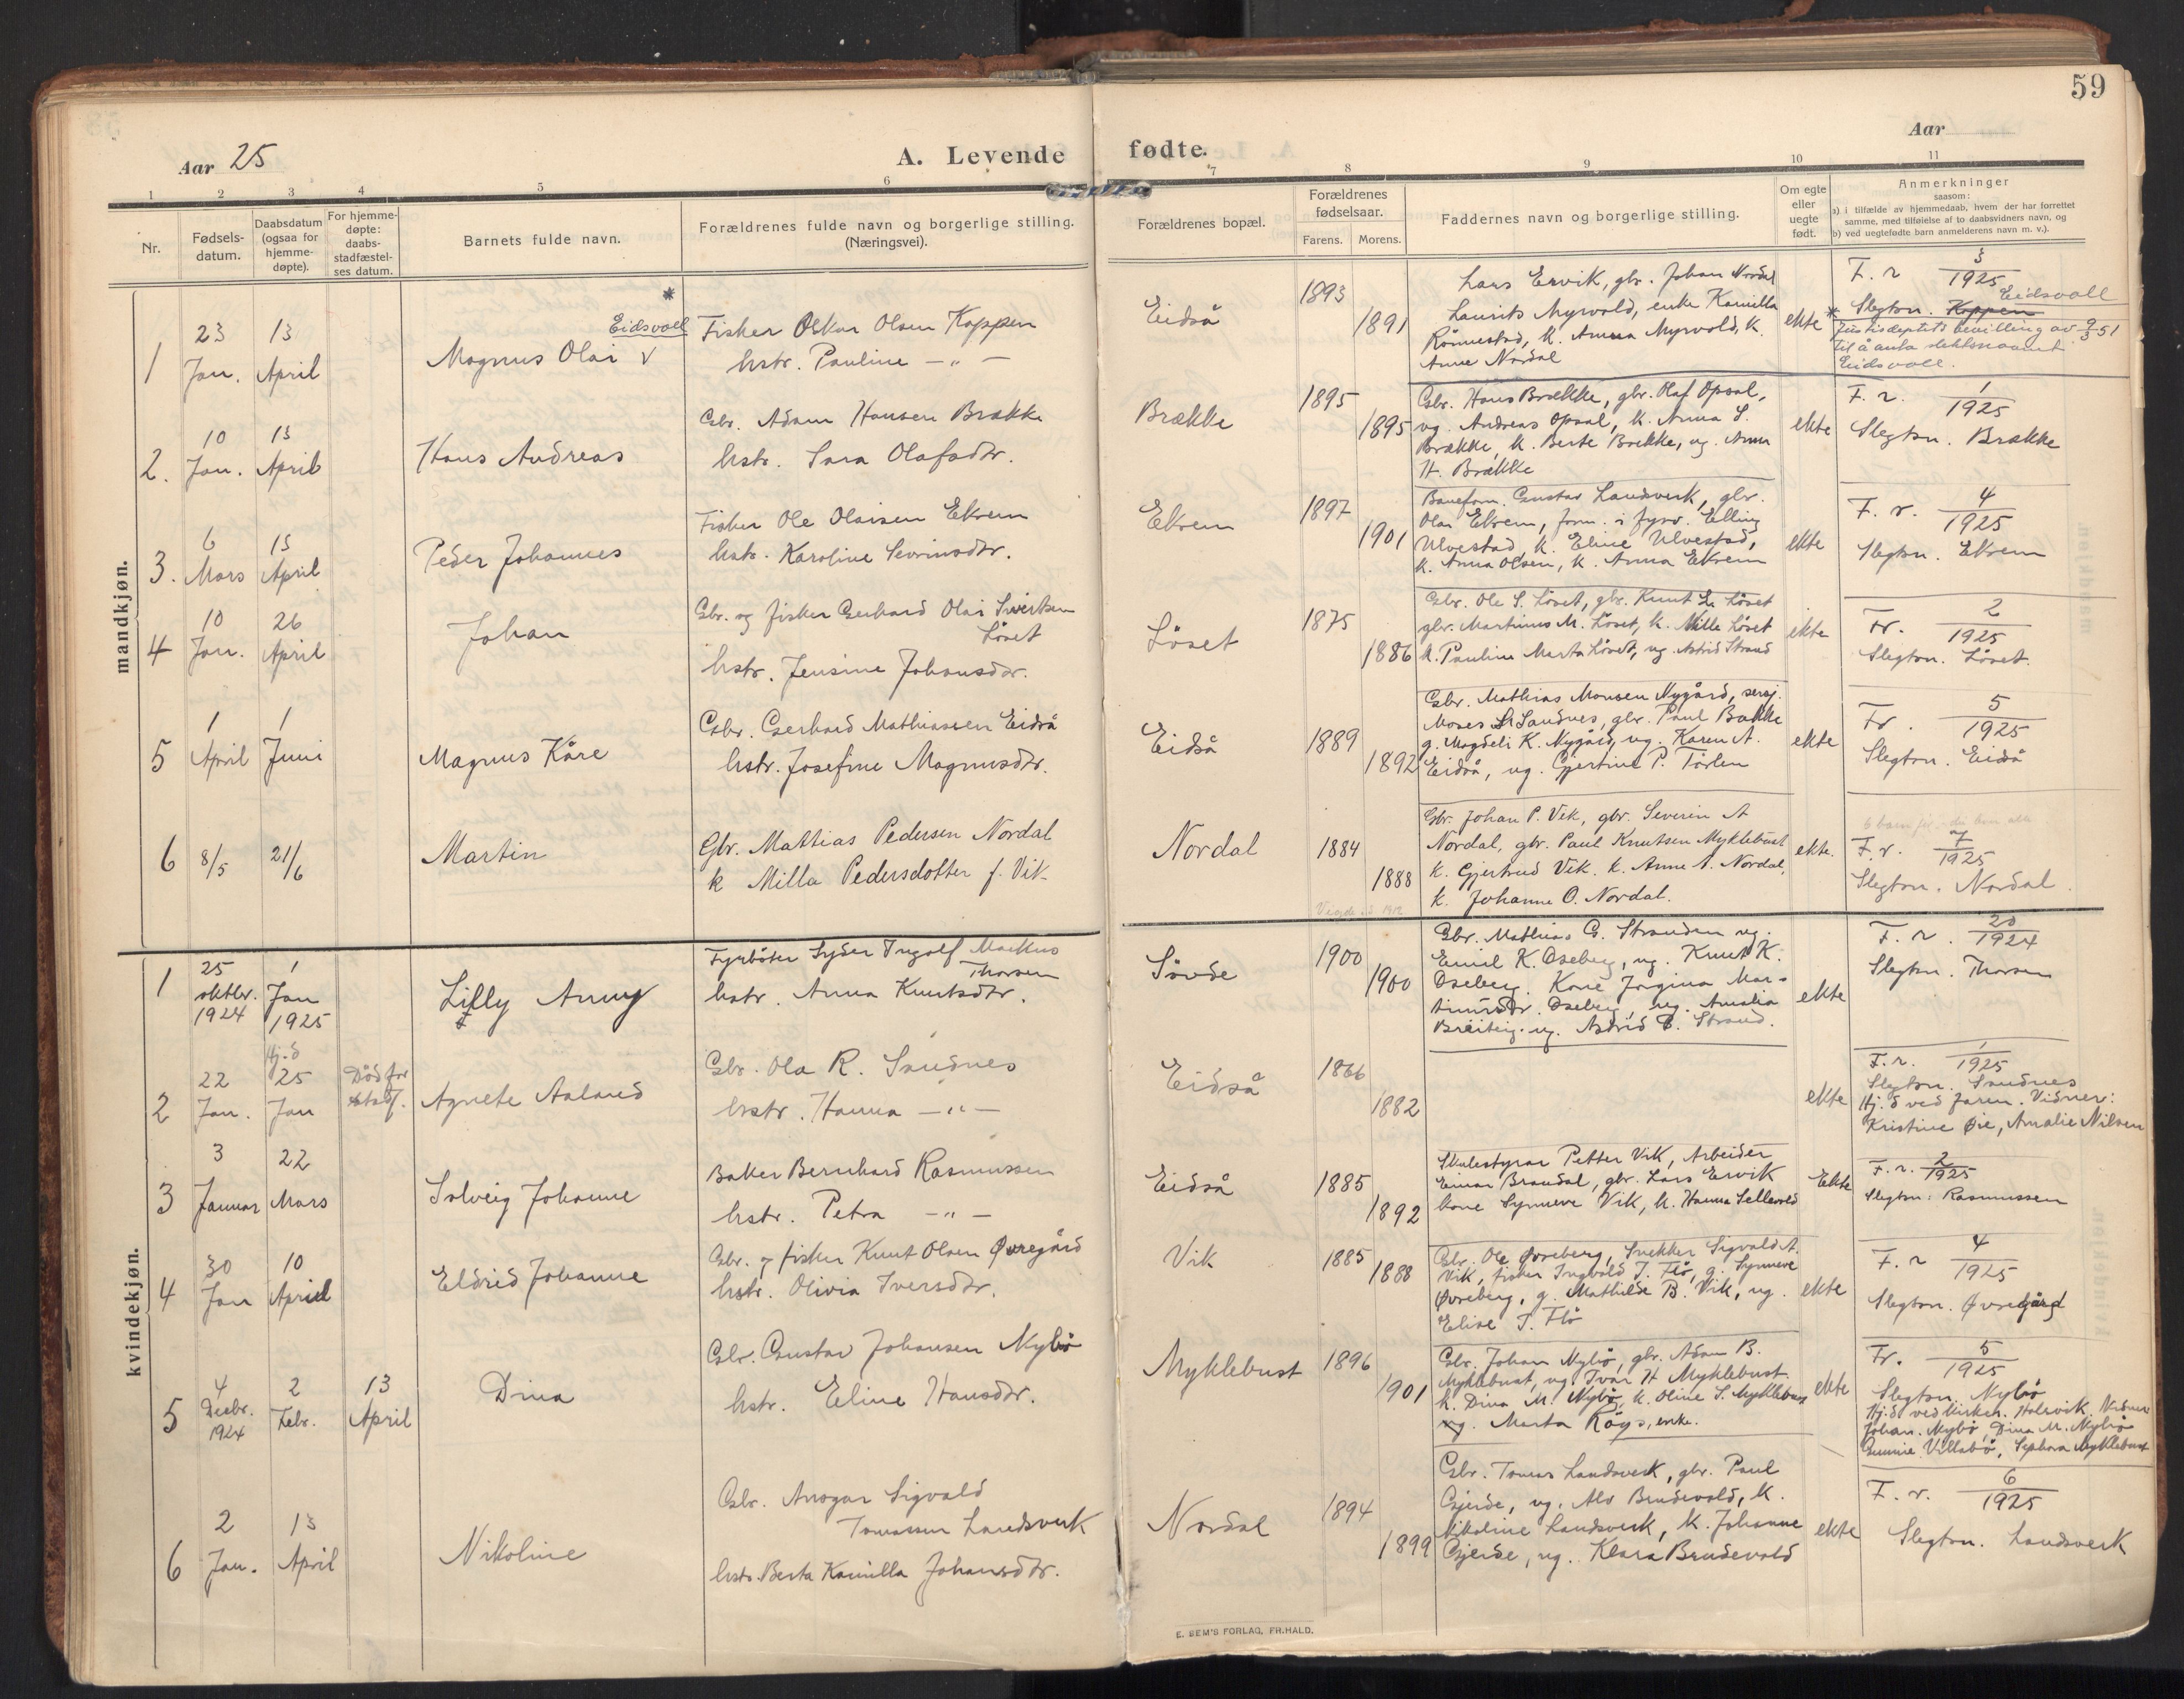 59
Aar 25
A. Levende fødte.
Aar
1 2 3 4 5 6 7 8 9 10 11
Nr.
Fødsels-
datum.
Daabsdatum
(ogsaa for
hjemme-
døpte).
For hjemme-
døpte:
daabs-
stadfæstel-
ses datum.
Barnets fulde navn.
Forældrenes fulde navn og borgerlige stilling.
(Næringsvei).
Forældrenes bopæl.
Forældrenes
fødselsaar.
Farens. Morens.
Faddernes navn og borgerlige stilling.
Om egte
eller
uegte
født.
Anmerkninger
saasom:
a) i tilfælde av hjemmedaab, hvem der har forrettet
samme, med tilføielse af to daabsvidners navn, og
b) ved uegtefødte barn anmelderens navn m. v.).
mandkjøn.
1
23
Jan.
13
April
*
Eidsvoll
Magnus Olai v
Fisker Oskar Olsen Koppen
hstr. Pauline — " —
Eidså
1893
1891
Lars Ervik, gbr. Johan Nordal
Laurits Myrvold, enke Kamilla
Rönnestad, k. Anna Myrvold, k.
Anne Nordal
ekte
F. r 3/1925
* Slegtsn. Koppen Eidsvoll
Justisdeptets bevilling av 9/3 51
til å anta slektsnavnet
Eidsvoll.
2.
10
Jan.
13
April
Hans Andreas
Gbr. Adam Hansen Brække
hstr. Sara Olafsdtr.
Brække
1895
1895
Gbr. Hans Brække, gbr. Olaf Opsal,
ug. Andreas Opsal, k. Anna S.
Brække, k. Berte Brække, ug. Anna
H. Brække
ekte
F. r. 1/1925
Slegtsn. Brække
3.
6
Mars
13
April
Peder Johannes
Fisker Ole Olaisen Ekrem
hstr. Karoline Sevrinsdtr.
Ekrem
1897
1901
Baneform. Gustav Landsverk, gbr.
Olai Ekrem, form. i fyrv. Elling
Ulvestad, k. Eline Ulvestad,
k. Anna Olsen, k. Anna Ekrem
ekte
F. r. 4/1925
Slegtsn. Ekrem
4
10
Jan.
26
April
Johan
Gbr. og fisker Gerhard Olai Sivertsen
Löset
hstr. Jensine Johansdtr.
Löset
1875
1886
Gbr. Ole S. Löset, gbr. Knut L. Löset
gbr. Martinus M. Löset, k. Milla Löset
k. Pauline Marta Löset, ug. Astrid Strand
ekte
Fr. 2/1925
Slegtsn. Löset.
5
1
April
1
Juni
Magnus Kåre
Gbr. Gerhard Mathiassen Eidså
hstr. Josefine Magnusdtr.
Eidså
1889
1892
Gbr. Mathias Monsen Nygård, sersj.
Moses Sandnes, gbr. Paul Bakke
g. Magdeli K. Nygård, ug. Karen A.
Eidså, ug. Gjertine P. Törlen
ekte
Fr. 5/1925
Slegtsn. Eidså
6
8/5
21/6
Martin
Gbr. Mathias Pedersen Nordal
k Milla Pedersdotter f. Vik
Nordal
1884
1888
1912
Gbr. Johan P. Vik, gbr. Severin A
Nordal, gbr. Paul Knutsen Myklebust
k. Gjertrud Vik. k. Anne A. Nordal,
k. Johanne O. Nordal.
ekte.
F. r. 7/1925
Slegtsn. Nordal
kvindekjøn.
1
25
oktbr.
1924
1
Jan
1925
Lilly Anny
Fyrböter Syder Ingolf Markus
Thorsen
hstr. Anna Knutsdtr.
Sövde
1900
1900
Gbr. Mathias G. Stranden ug.
Emil K. Oseberg, ug. Knut K.
Oseberg. Kone Jörgina Mar-
tinusdtr. Oseberg, ug. Amalia
Breiteig. ug. Astrid B. Strand.
ekte
F. r. 20/1924
Slegtsn. Thorsen
2
22
Jan.
Hj.d
25
Jan
Död för
stadf.
Agnete Aaland
Gbr. Ola R. Sandnes
hstr. Hanna — " —
Eidså
1866
1882
ekte
F. r. 1/1925
Slegtsn. Sandnes
Hj.d ved faren. Vidner:
Kristine Øie, Amalie Nilsen
3
3
Januar
22
Mars
Solveig Johanne
Baker Bernhard Rasmussen
hstr. Petra — " —
Eidså
1885
1892
Skulestyrar Petter Vik, Arbeider
Einar Brandal, gbr. Lars Ervik
kone Synneve Vik, k. Hanna Sellevold
Ekte
F. r. 2/1925
Slegtsn: Rasmussen
4
30
Jan
10
April
Eldrid Johanne
Gbr. og fisker Knut Olsen Øvregård
hstr. Olivia Iversdtr.
Vik
1885
1888
Gbr. Ole Øvreberg, Snekker Sigvald A.
Vik, fisker Ingvald J. Flö, g. Synneve
Øvreberg, g. Mathilde B. Vik, ug.
Elise J. Flö
ekte
F. r 4/1925
Slegtsn. Øvregård
5
4
Desbr.
1924
2
Febr.
13
April
Dina
Gbr. Gustav Johansen Nybö
hstr. Eline Hansdtr.
Myklebust
1896
1901
Gbr. Johan Nybö, gbr. Adam B.
Myklebust, ug. Ivar H Myklebust.
k. Dina M. Nybö, k. Oline S. Myklebust
ug. Marta Röys, enke.
ekte
Fr. 5/1925
Slegtsn. Nybö
Hj.d ved kirkes. Halsvik. Vidner
Johan. Nybö, Dina M. Nybö
Gunnie Villabö, Sephora Myklebust
6
2
Jan.
13
April
Nikoline
Gbr. Ansgar Sigvald
Tomassen Landsverk
hstr. Berta Kamilla Johansdtr.
Nordal
1894
1899
Gbr. Tomas Landsverk, gbr. Paul
Gjerde, ug. Alv Brudevold, k.
Nikoline Landsverk, k. Johanne
Gjerde, ug. Klara Brudevold
ekte
F. r. 6/1925
Slegtsn. Landsverk
E. SEM'S FORLAG, FR.HALD.